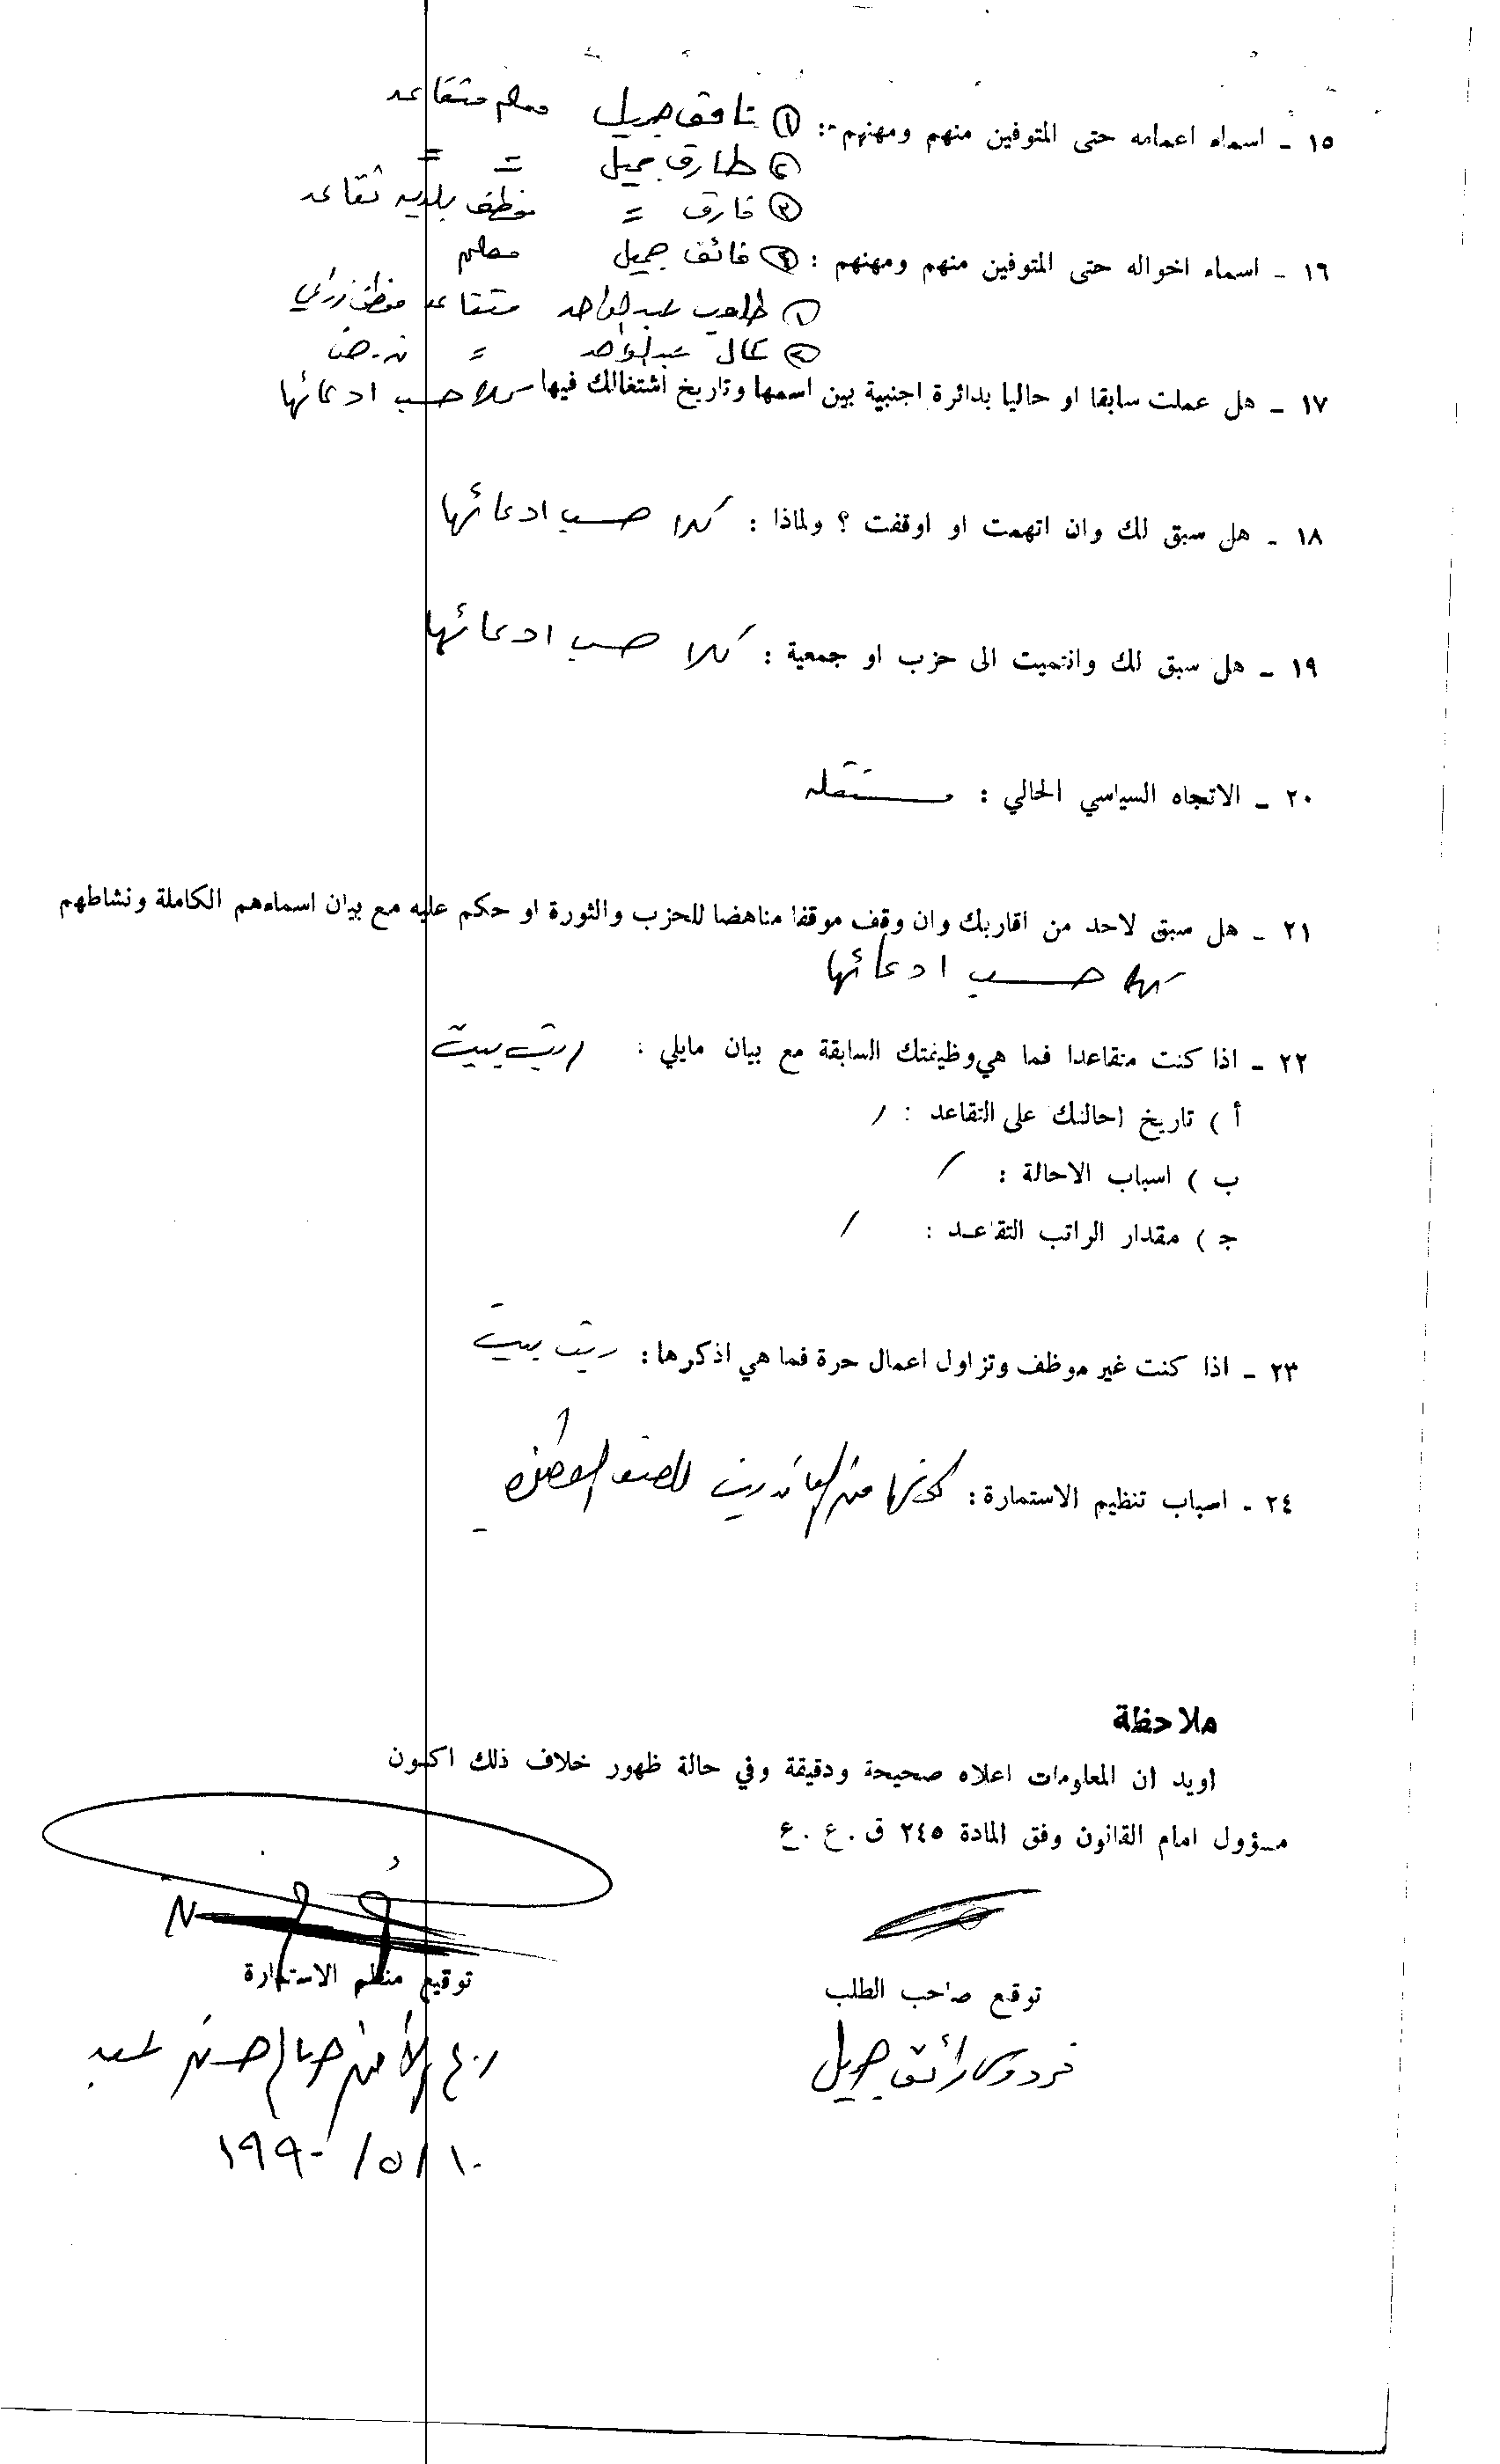 ١٥ - اسماء اعمامه حتى المتوفين منهم ومهنهم : ١ جميل معلم متقاعد
٢ طارق جميل = =
٣ فارق = موظف بلدية تقاعد
١٦ - اسماء اخواله حتى المتوفين منهم ومهنهم : ٤ فائق جميل معلم
١ عبدالواحد متقاعد موظف زراعي
٢ كمال عبدالواحد =
١٧ - هل عملت سابقا او حاليا بدائرة اجنبية بين اسمها وتاريخ اشتغالك فيها كلا حسب ادعائها
١٨ - هل سبق لك وان اتهمت او اوقفت ؟ ولماذا : كلا حسب ادعائها
١٩ - هل سبق لك وانتميت الى حزب او جمعية : كلا حسب ادعائها
٢٠ - الاتجاه السياسي الحالي : مستقله
٢١ - هل سبق لاحد من اقاربك وان وقف موقفا مناهضا للحزب والثورة او حكم عليه مع بيان اسماءهم الكاملة ونشاطهم
كلا حسب ادعائها
٢٢ - اذا كنت متقاعدا فما هي وظيفتك السابقة مع بيان مايلي : ربت بيت
أ ) تاريخ احالتك على التقاعد : /
ب ) اسباب الاحالة : /
ج ) مقدار الراتب التقاعد : /
٢٣ - اذا كنت غير موظف وتزاول اعمال حرة فما هي اذكرها : ربت بيت
٢٤ - اسباب تنظيم الاستمارة : كونها من
ملاحظة
اويد ان المعلومات اعلاه صحيحة ودقيقة وفي حالة ظهور خلاف ذلك اكون
مسؤول امام القانون وفق المادة ٢٤٥ ق . ع . ع
توقع صاحب الطلب توقيع منظم الاستمارة
فردوس رائق جميل ر.ع الأمن حسن عبد
١٠ / ٥ / ١٩٩٠